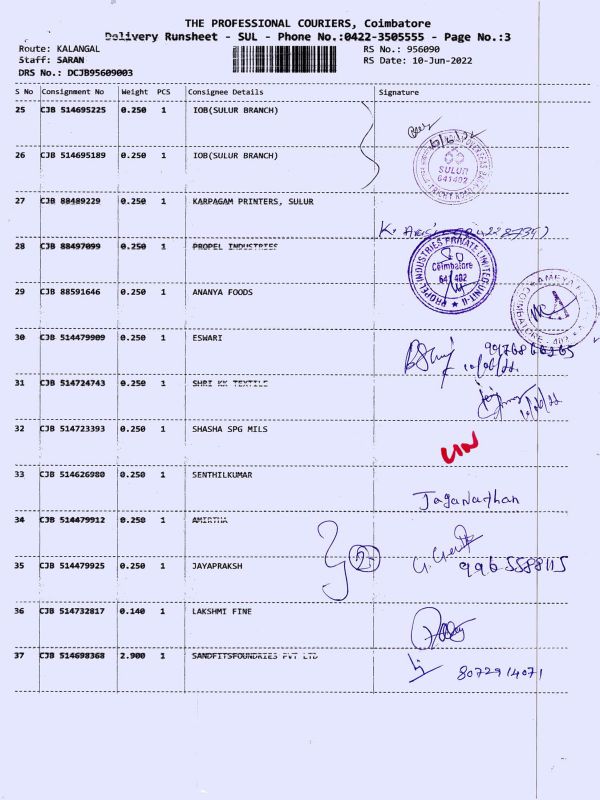 THE PROFESSIONAL COURIERS, Coimbatore
Delivery Runsheet - SUL - Phone No.:0422-3505555 - Page No.:3
Route: KALANGAL
RS No.: 956090
Staff: SARAN
RS Date: 10-Jun-2022
DRS No.: DCJB95609003
S No Consignment No Weight PCS Consignee Details Signature
25 CJB 514695225 0.250 1 IOB(SULUR BRANCH)
26 CJB 514695189 0.250 1 IOB(SULUR BRANCH)
SULUR
641402
27 CJB 88489229 0.250 1 KARPAGAM PRINTERS, SULUR
28 CJB 88497099 0.250 1 PROPEL INDUSTRIES
PROPEL INDUSTRIES PRIVATE LIMITED-UNIT-II
Coimbatore
641 402
29 CJB 88591646 0.250 1 ANANYA FOODS
30 CJB 514479909 0.250 1 ESWARI
10/06/22
31 CJB 514724743 0.250 1 SHRI KK TEXTILE
10/06/22
32 CJB 514723393 0.250 1 SHASHA SPG MILS
33 CJB 514626980 0.250 1 SENTHILKUMAR
Jaganathan
34 CJB 514479912 0.250 1 AMIRTHA
2
35 CJB 514479925 0.250 1 JAYAPRAKSH
9965588115
36 CJB 514732817 0.140 1 LAKSHMI FINE
37 CJB 514698368 2.900 1 SANDFITSFOUNDRIES PVT LTD
8072914071